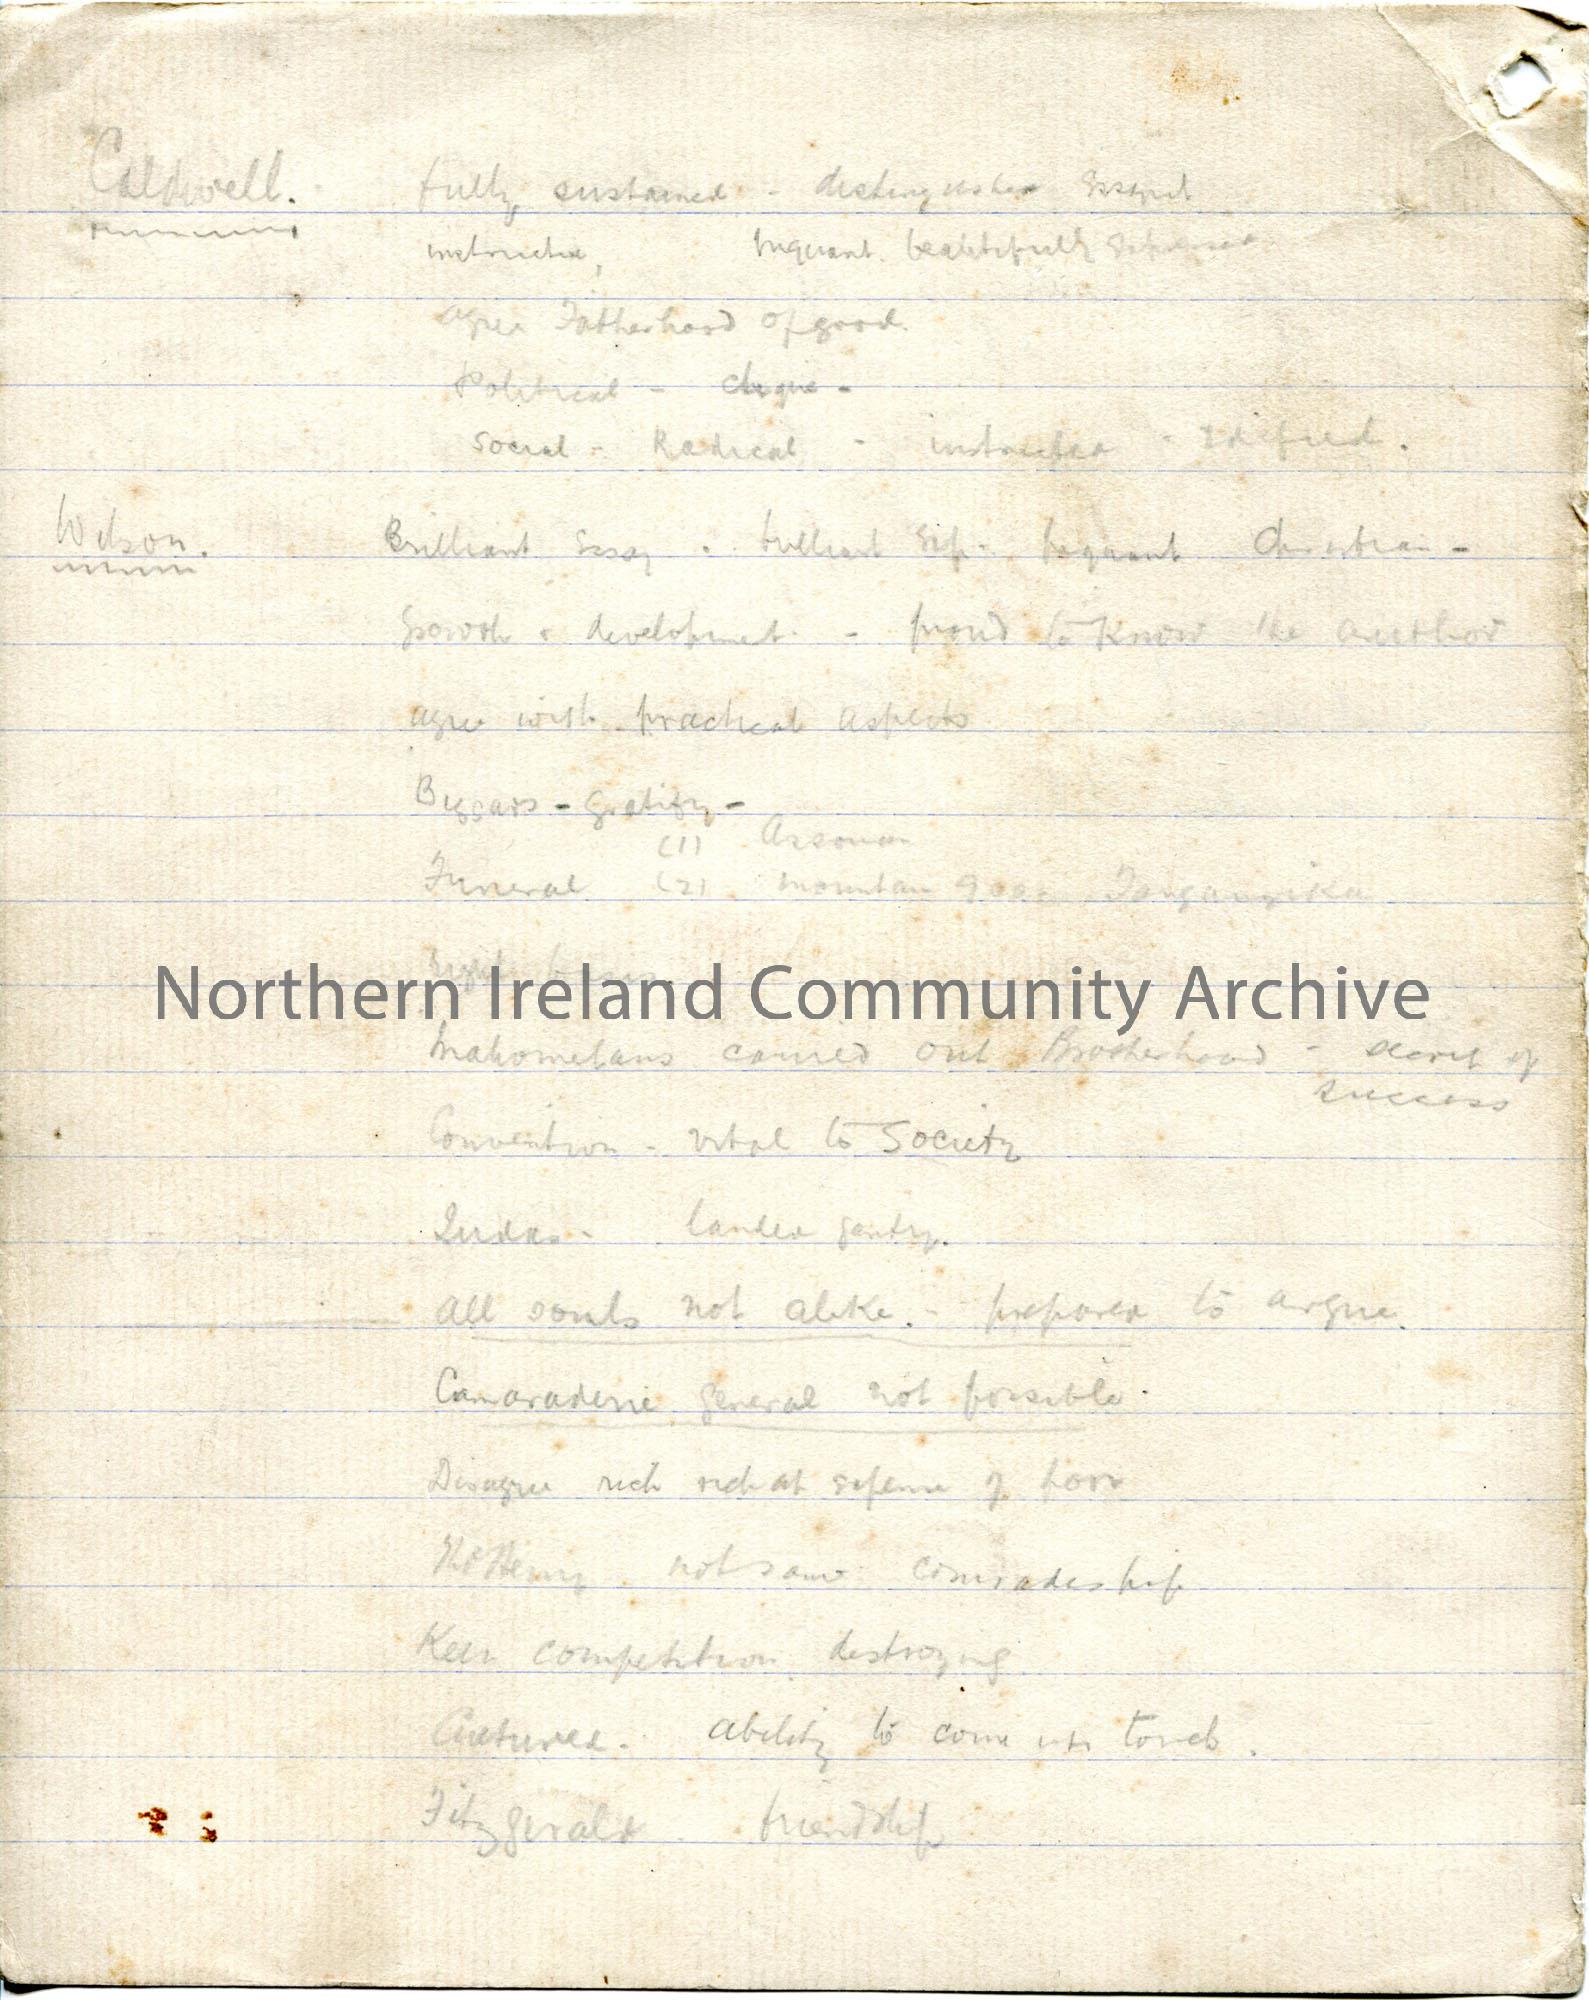 Caldwell. fully sustained - distinguished Essayist
instructive, piquant. beautifully Expressed
agree Fatherhood of good.
Political - clique -
Social - Radical - instructed - Edified.
Wilson. Brilliant Essay. brilliant piquant Christian -
Growth & development - proud to know the author
agree with practical aspects
Beggars - gratify -
(1) Assouan
Funeral (2) mountain 9000 Tanganyika
Northern Ireland Community Archive
Mahometans carried out Brotherhood - secret of
success
Convention - vital to Society
Judas - landed gentry.
All souls not alike. - prepared to argue.
Camaraderie general not possible.
Disagree rich rich at expense of poor
not same comradeship
Keen competition destroying
Cultured - ability to come into touch.
Fitzgerald. friendship